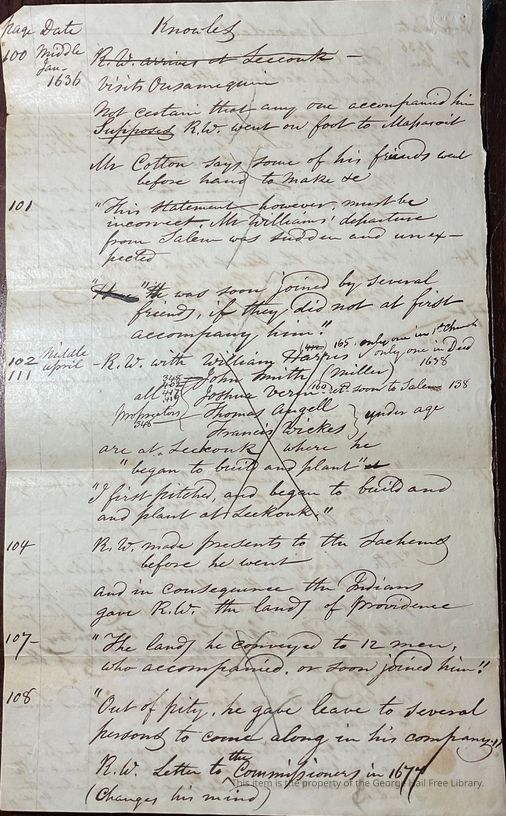 Page Date Knowles
100 Middle R.W. arrives at Seekonk -
Jan. 1636
Visits Ousamequin
Not certain that any one accompanied him
Supposed R.W. went on foot to Maparoit
Mr Cotton says some of his friends went
before hand to make &c
101 "This statement, however, must be
incorrect. Mr Williams' departure
from Salem was sudden and unex-
pected
"He was soon joined by several
friends, if they did not at first
accompany him."
165 only one in 1st Church
102 Middle April - R.W. with William Harris only one in Deed 1638
111 John Smith (Miller)
all Joshua Verin soon to Salem 138
proprietors Thomas Angell
348 Francis Wickes } under age
are at Seekonk where he
"began to build and plant"
"I first pitched, and began to build and
and plant at Seekonk."
104 R.W. made presents to the Sachems
before he went
and in consequence the Indians
gave R.W. the lands of Providence
107- "The lands he conveyed to 12 men,
who accompanied, or soon joined him."
108 "Out of pity, he gave leave to several
persons to come along in his company."
R.W. Letter to the Commissioners in 1677
(Changes his mind)
This item is the property of the George Hail Free Library.